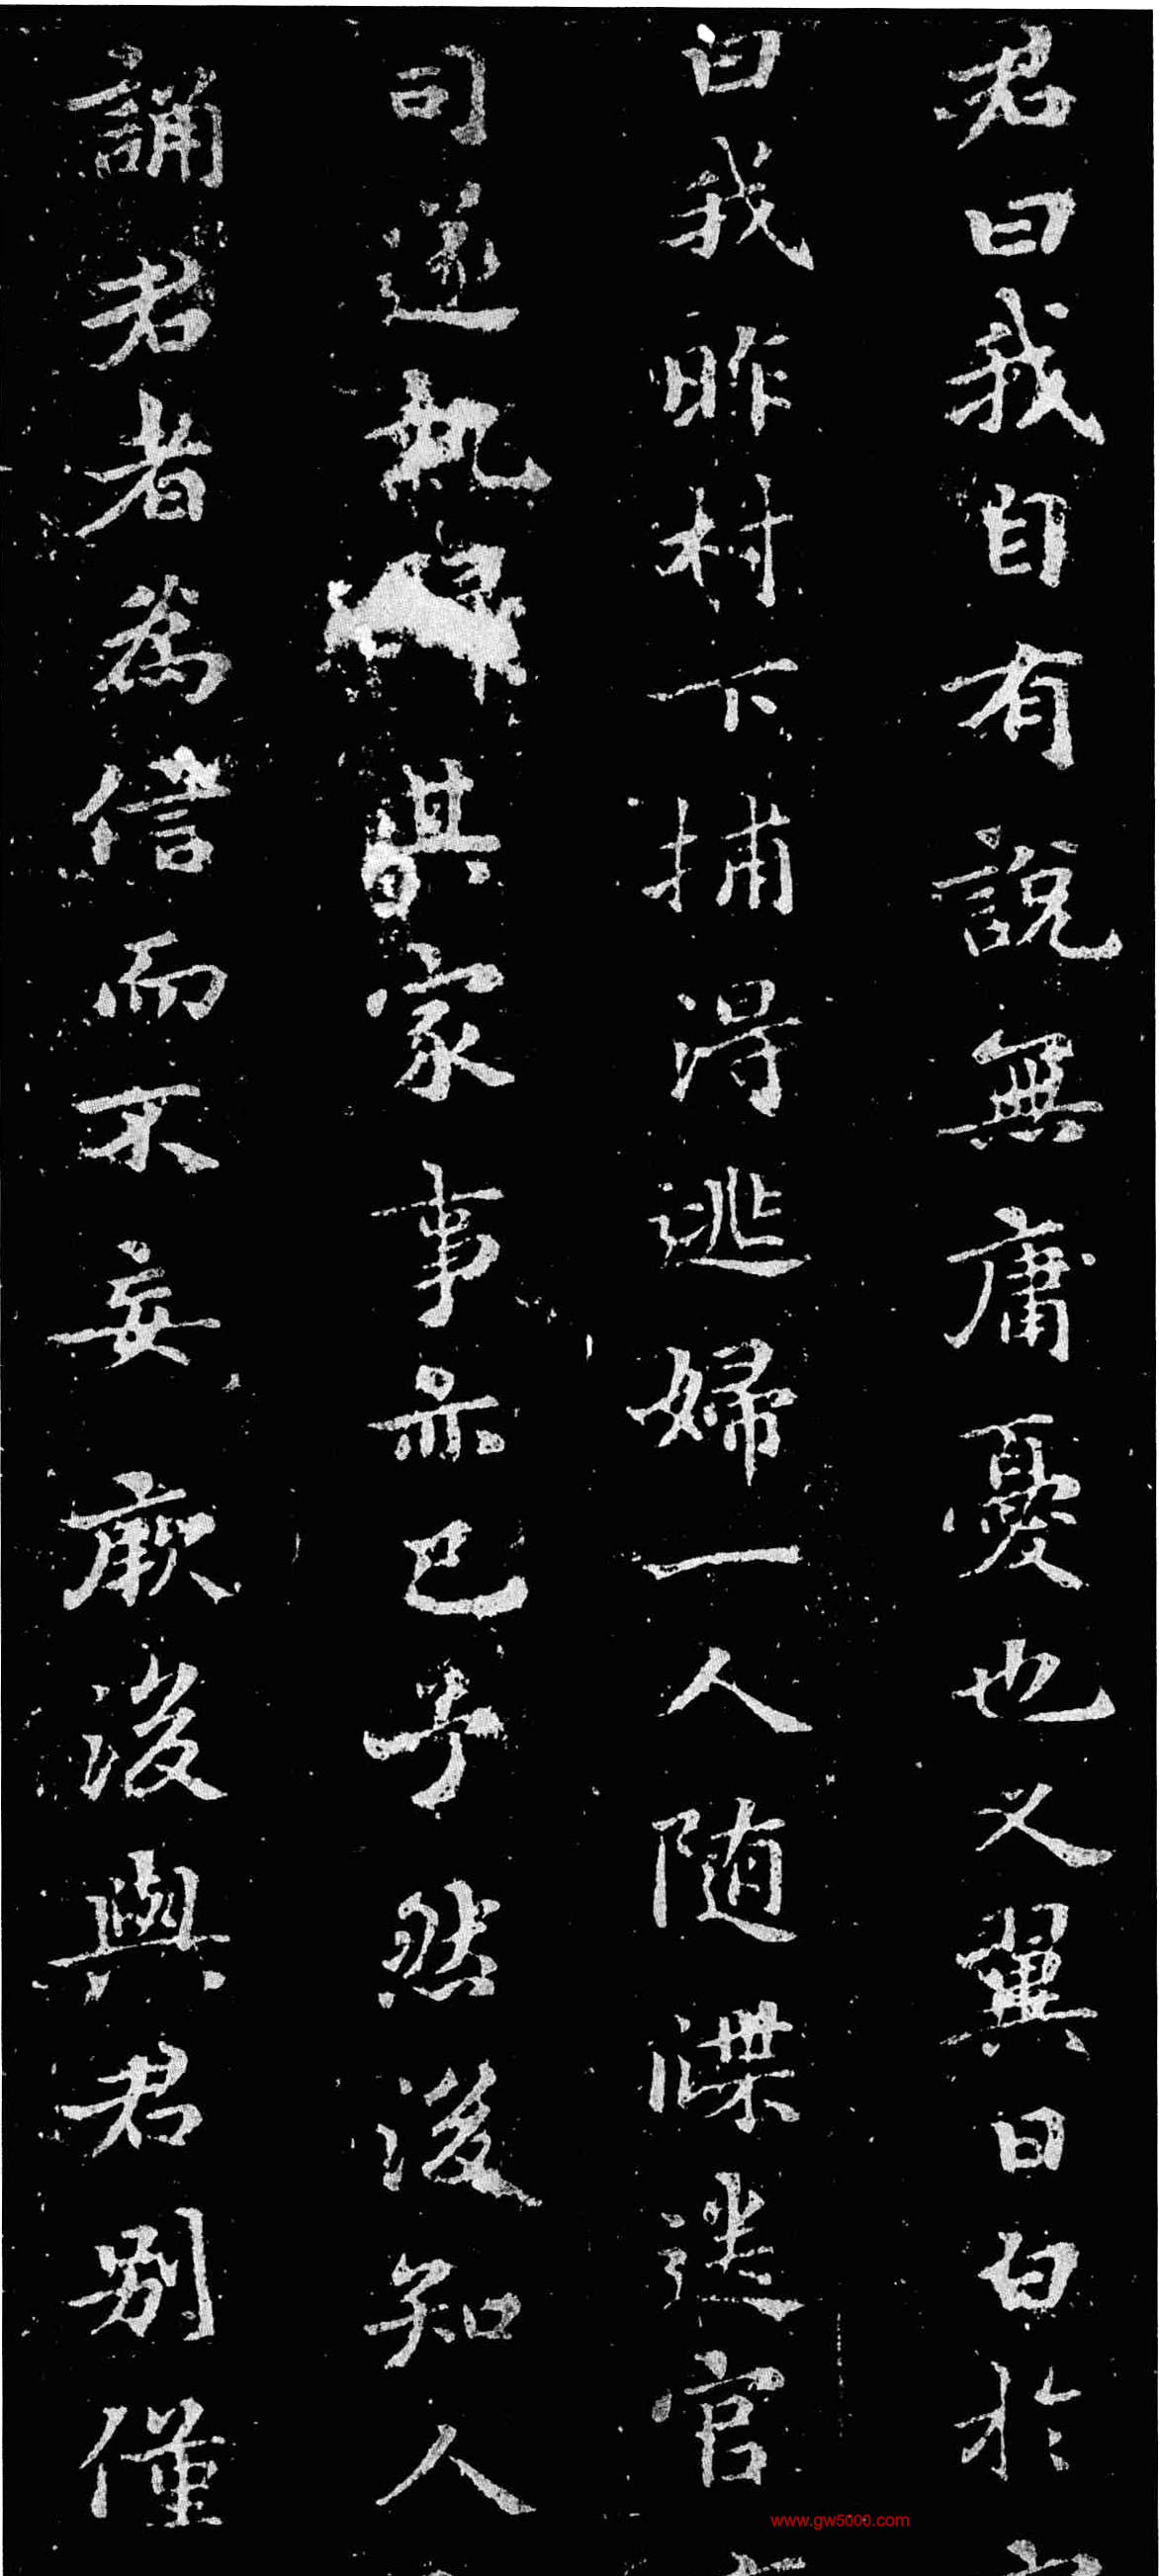 君曰我自有說無庸憂也又翼日白於
曰我昨村下捕得逃婦一人隨牒遞官
司遂執歸其家事亦已乎然後知人
誦君者為信而不妄厥後與君別僅
www.gw5000.com